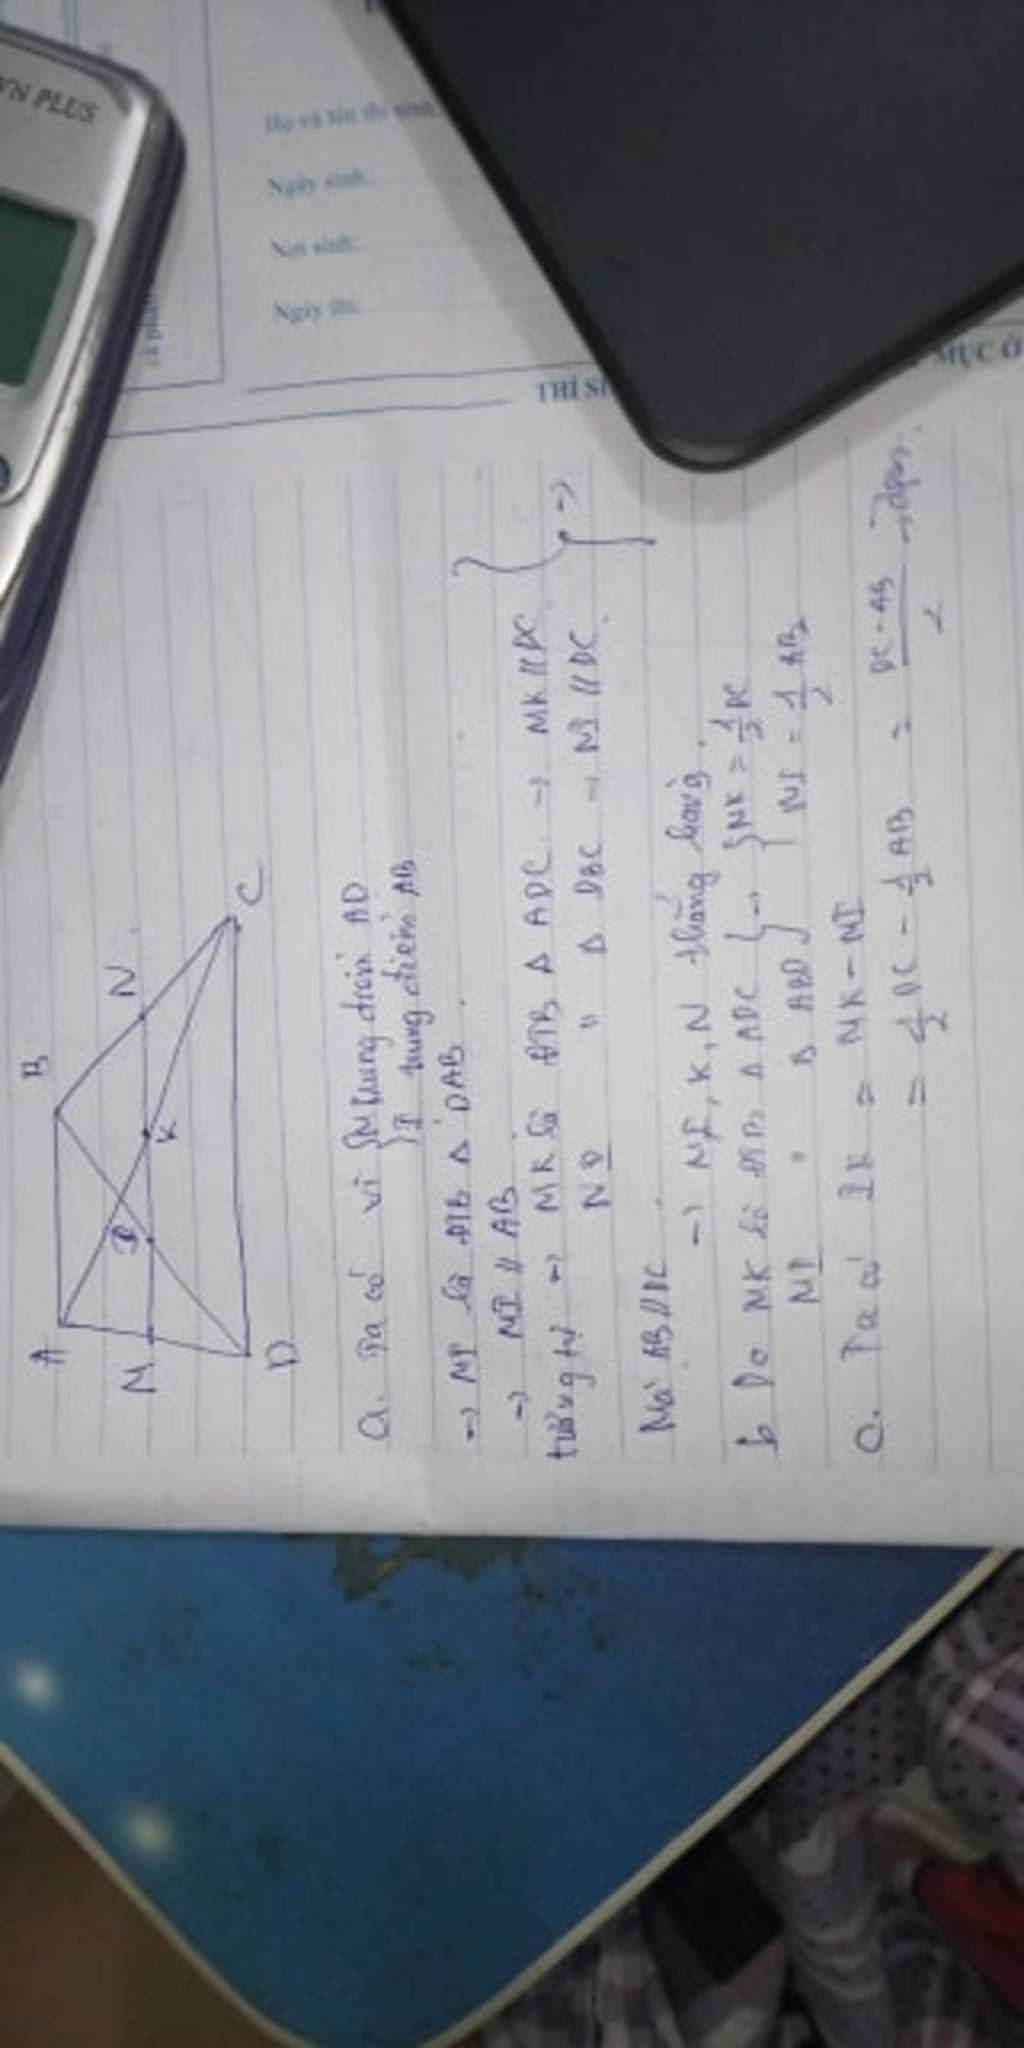 VN PLUS
Họ và tên thí sinh:
Ngày sinh:
Nơi sinh:
Ngày thi:
THÍ SI
MỤC Ở
A
B
M
I
K
N
D
C
a. Ta có vì { M trung điểm AD
I trung điểm AB
→ MI là ĐTB Δ DAB
→ MI // AB
tương tự → MK là ĐTB Δ ADC → MK // DC
NI " Δ DBC → NI // DC
} →
Mà AB // DC
→ M, I, K, N thẳng hàng.
b Do MK là ĐTB Δ ADC } → { MK = 1/2 DC
MI " Δ ABD } { MI = 1/2 AB
c. Ta có IK = MK - MI
= 1/2 DC - 1/2 AB = DC - AB / 2 → đpcm.